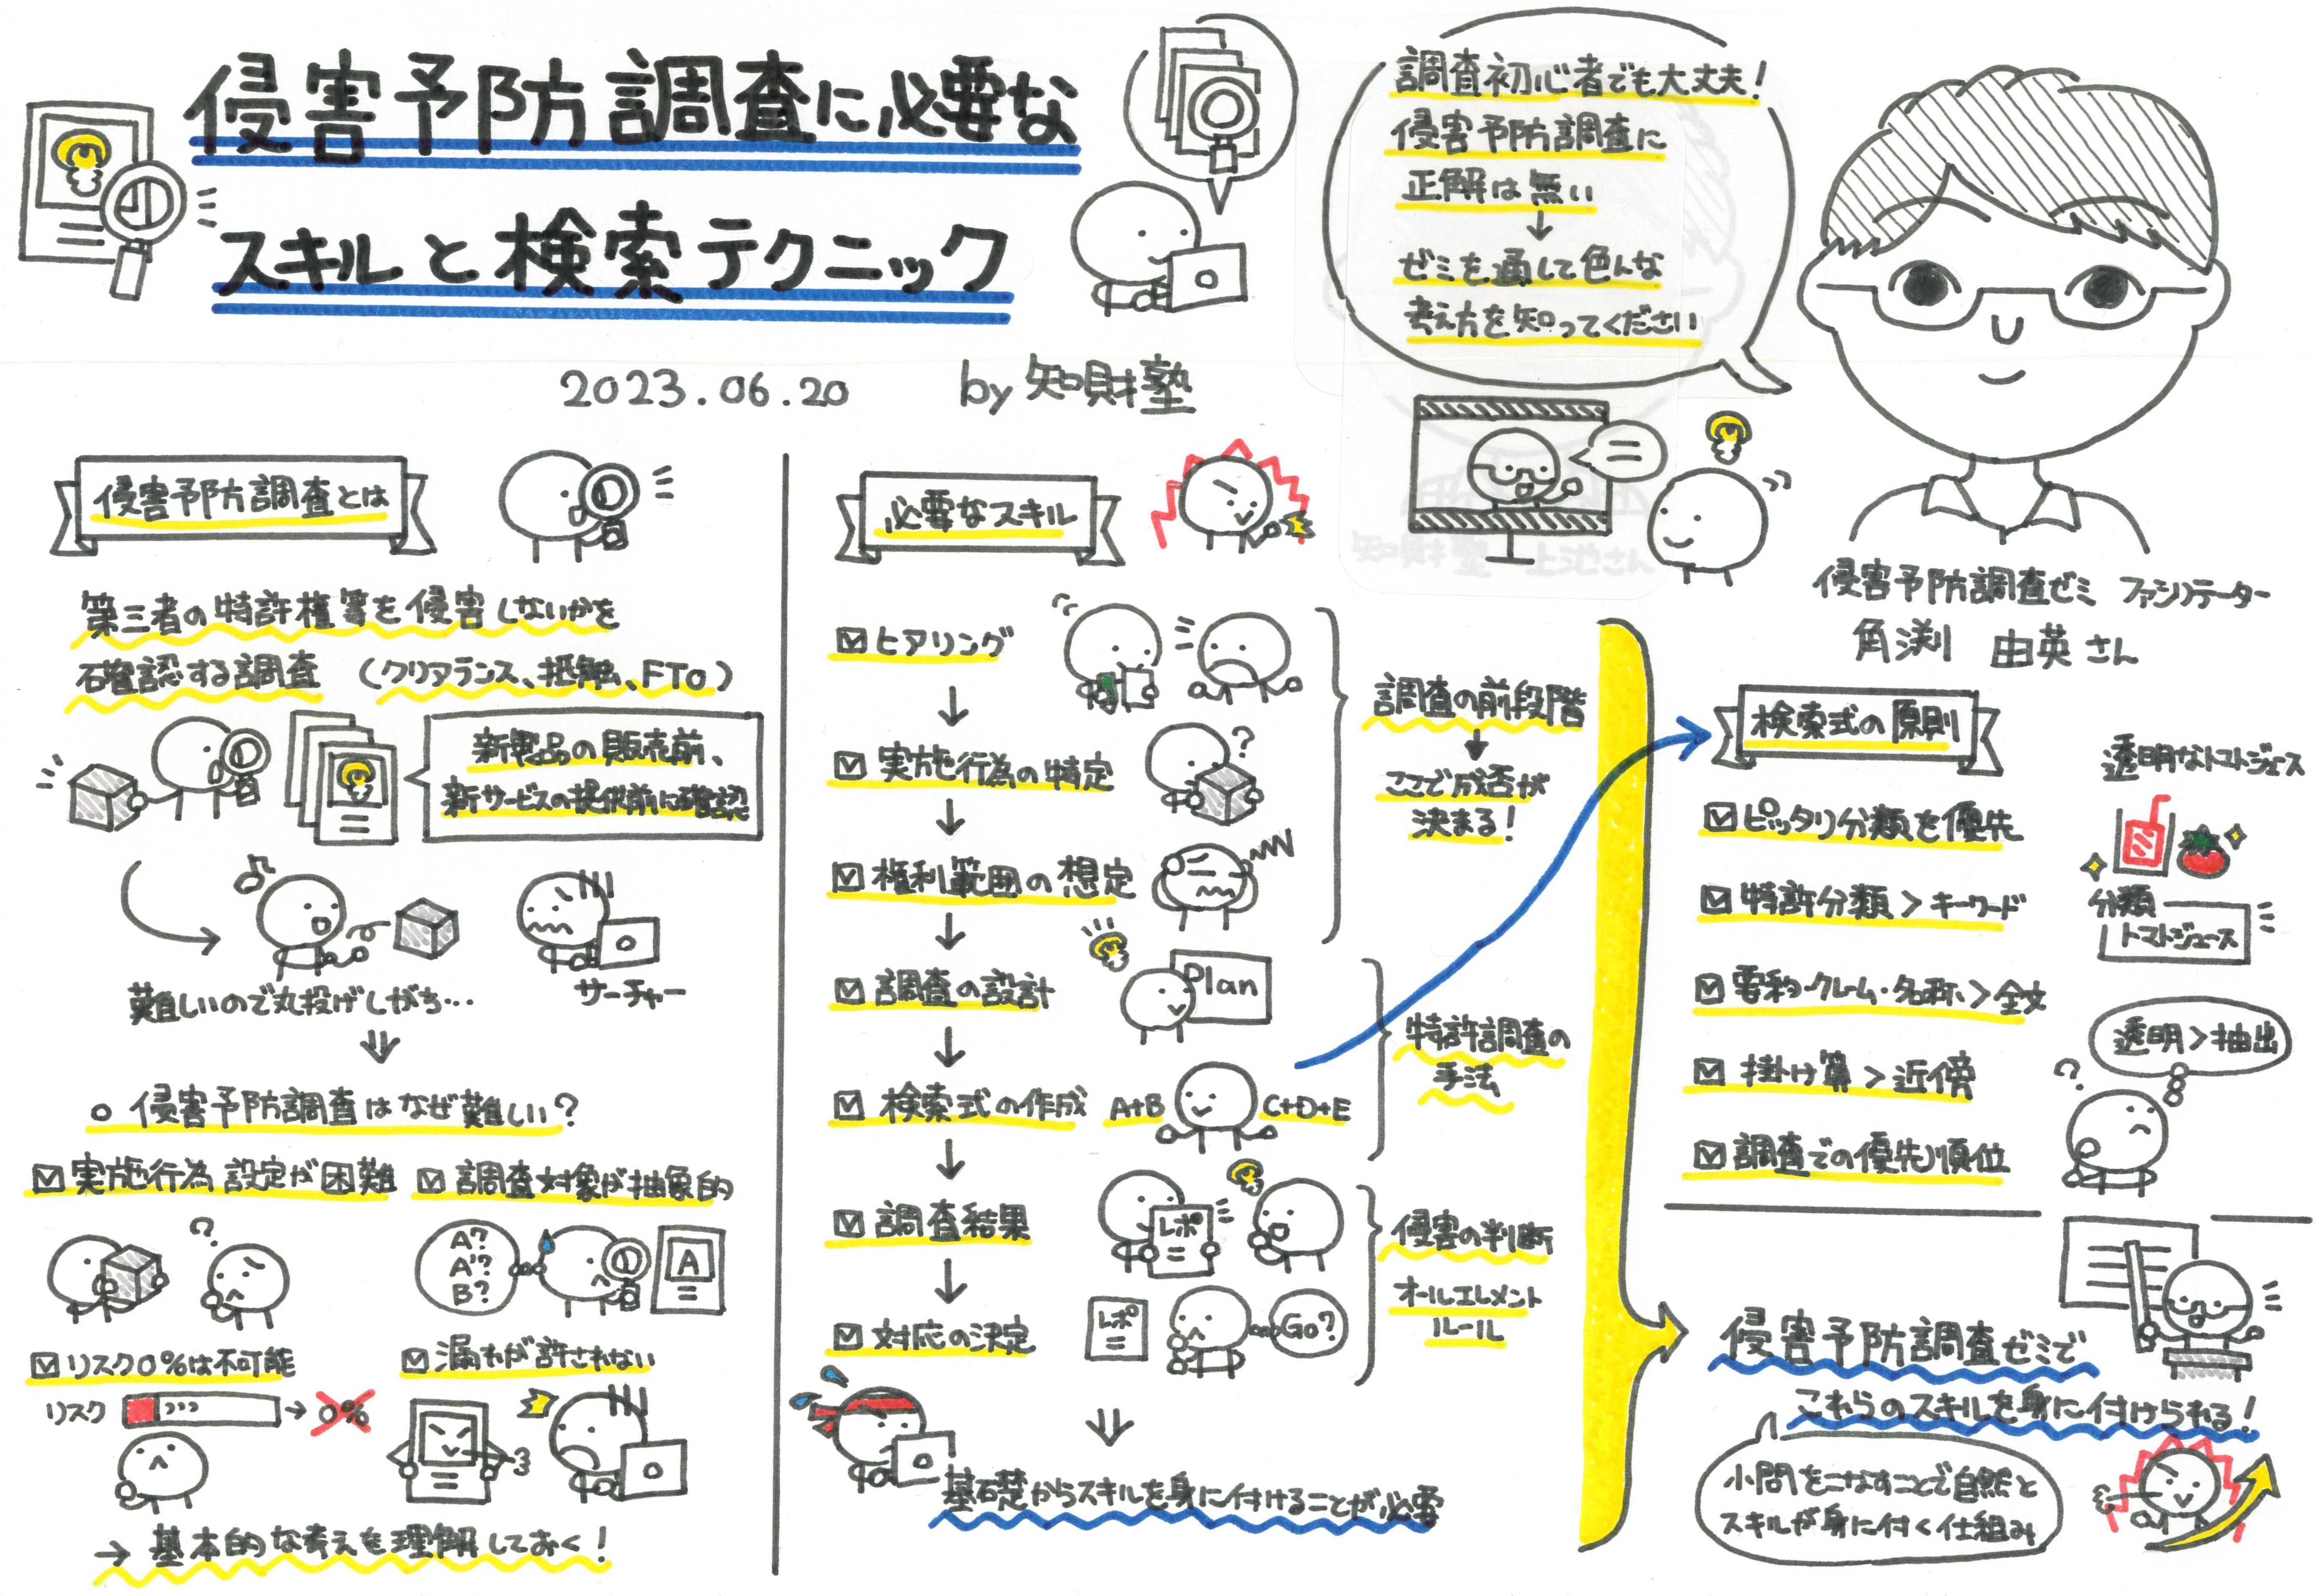 侵害予防調査に必要な
スキルと検索テクニック
2023.06.20 by 知財塾
調査初心者でも大丈夫!
侵害予防調査に
正解は無い
↓
ゼミを通して色んな
考え方を知ってください
侵害予防調査ゼミ ファシリテーター
角渕 由英さん
侵害予防調査とは
第三者の特許権等を侵害しないかを
確認する調査 (クリアランス、抵触、FTO)
新製品の販売前、
新サービスの提供前に確認
難しいので丸投げしがち…
サーチャー
○ 侵害予防調査はなぜ難しい?
☑ 実施行為設定が困難
☑ 調査対象が抽象的
?
A?
A'?
B?
A
☑ リスク0%は不可能
☑ 漏れが許されない
リスク → 0%
→ 基本的な考えを理解しておく!
必要なスキル
☑ ヒアリング
↓
☑ 実施行為の特定
?
↓
☑ 権利範囲の想定
↓
☑ 調査の設計
Plan
↓
☑ 検索式の作成 A+B C+D+E
↓
☑ 調査結果
レポ
↓
☑ 対応の決定
レポ
Go?
調査の前段階
↓
ここで成否が
決まる!
特許調査の
手法
侵害の判断
オールエレメント
ルール
基礎からスキルを身に付けることが必要
検索式の原則
☑ ピッタリ分類を優先
☑ 特許分類 > キーワード
☑ 要約・クレーム・名称 > 全文
☑ 掛け算 > 近傍
☑ 調査での優先順位
透明なトマトジュース
分類
トマトジュース
透明 > 抽出
?
侵害予防調査ゼミで
これらのスキルを身に付けられる!
小問をこなすことで自然と
スキルが身に付く仕組み